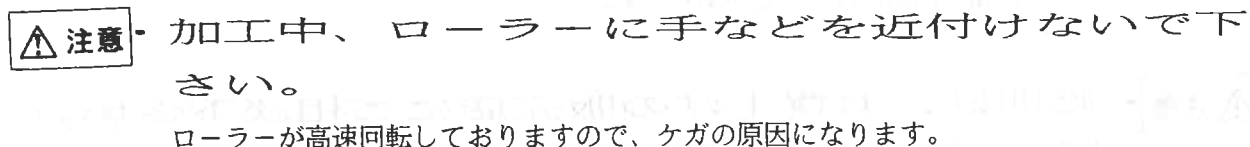 ⚠注意・加工中、ローラーに手などを近付けないで下
さい。
ローラーが高速回転しておりますので、ケガの原因になります。